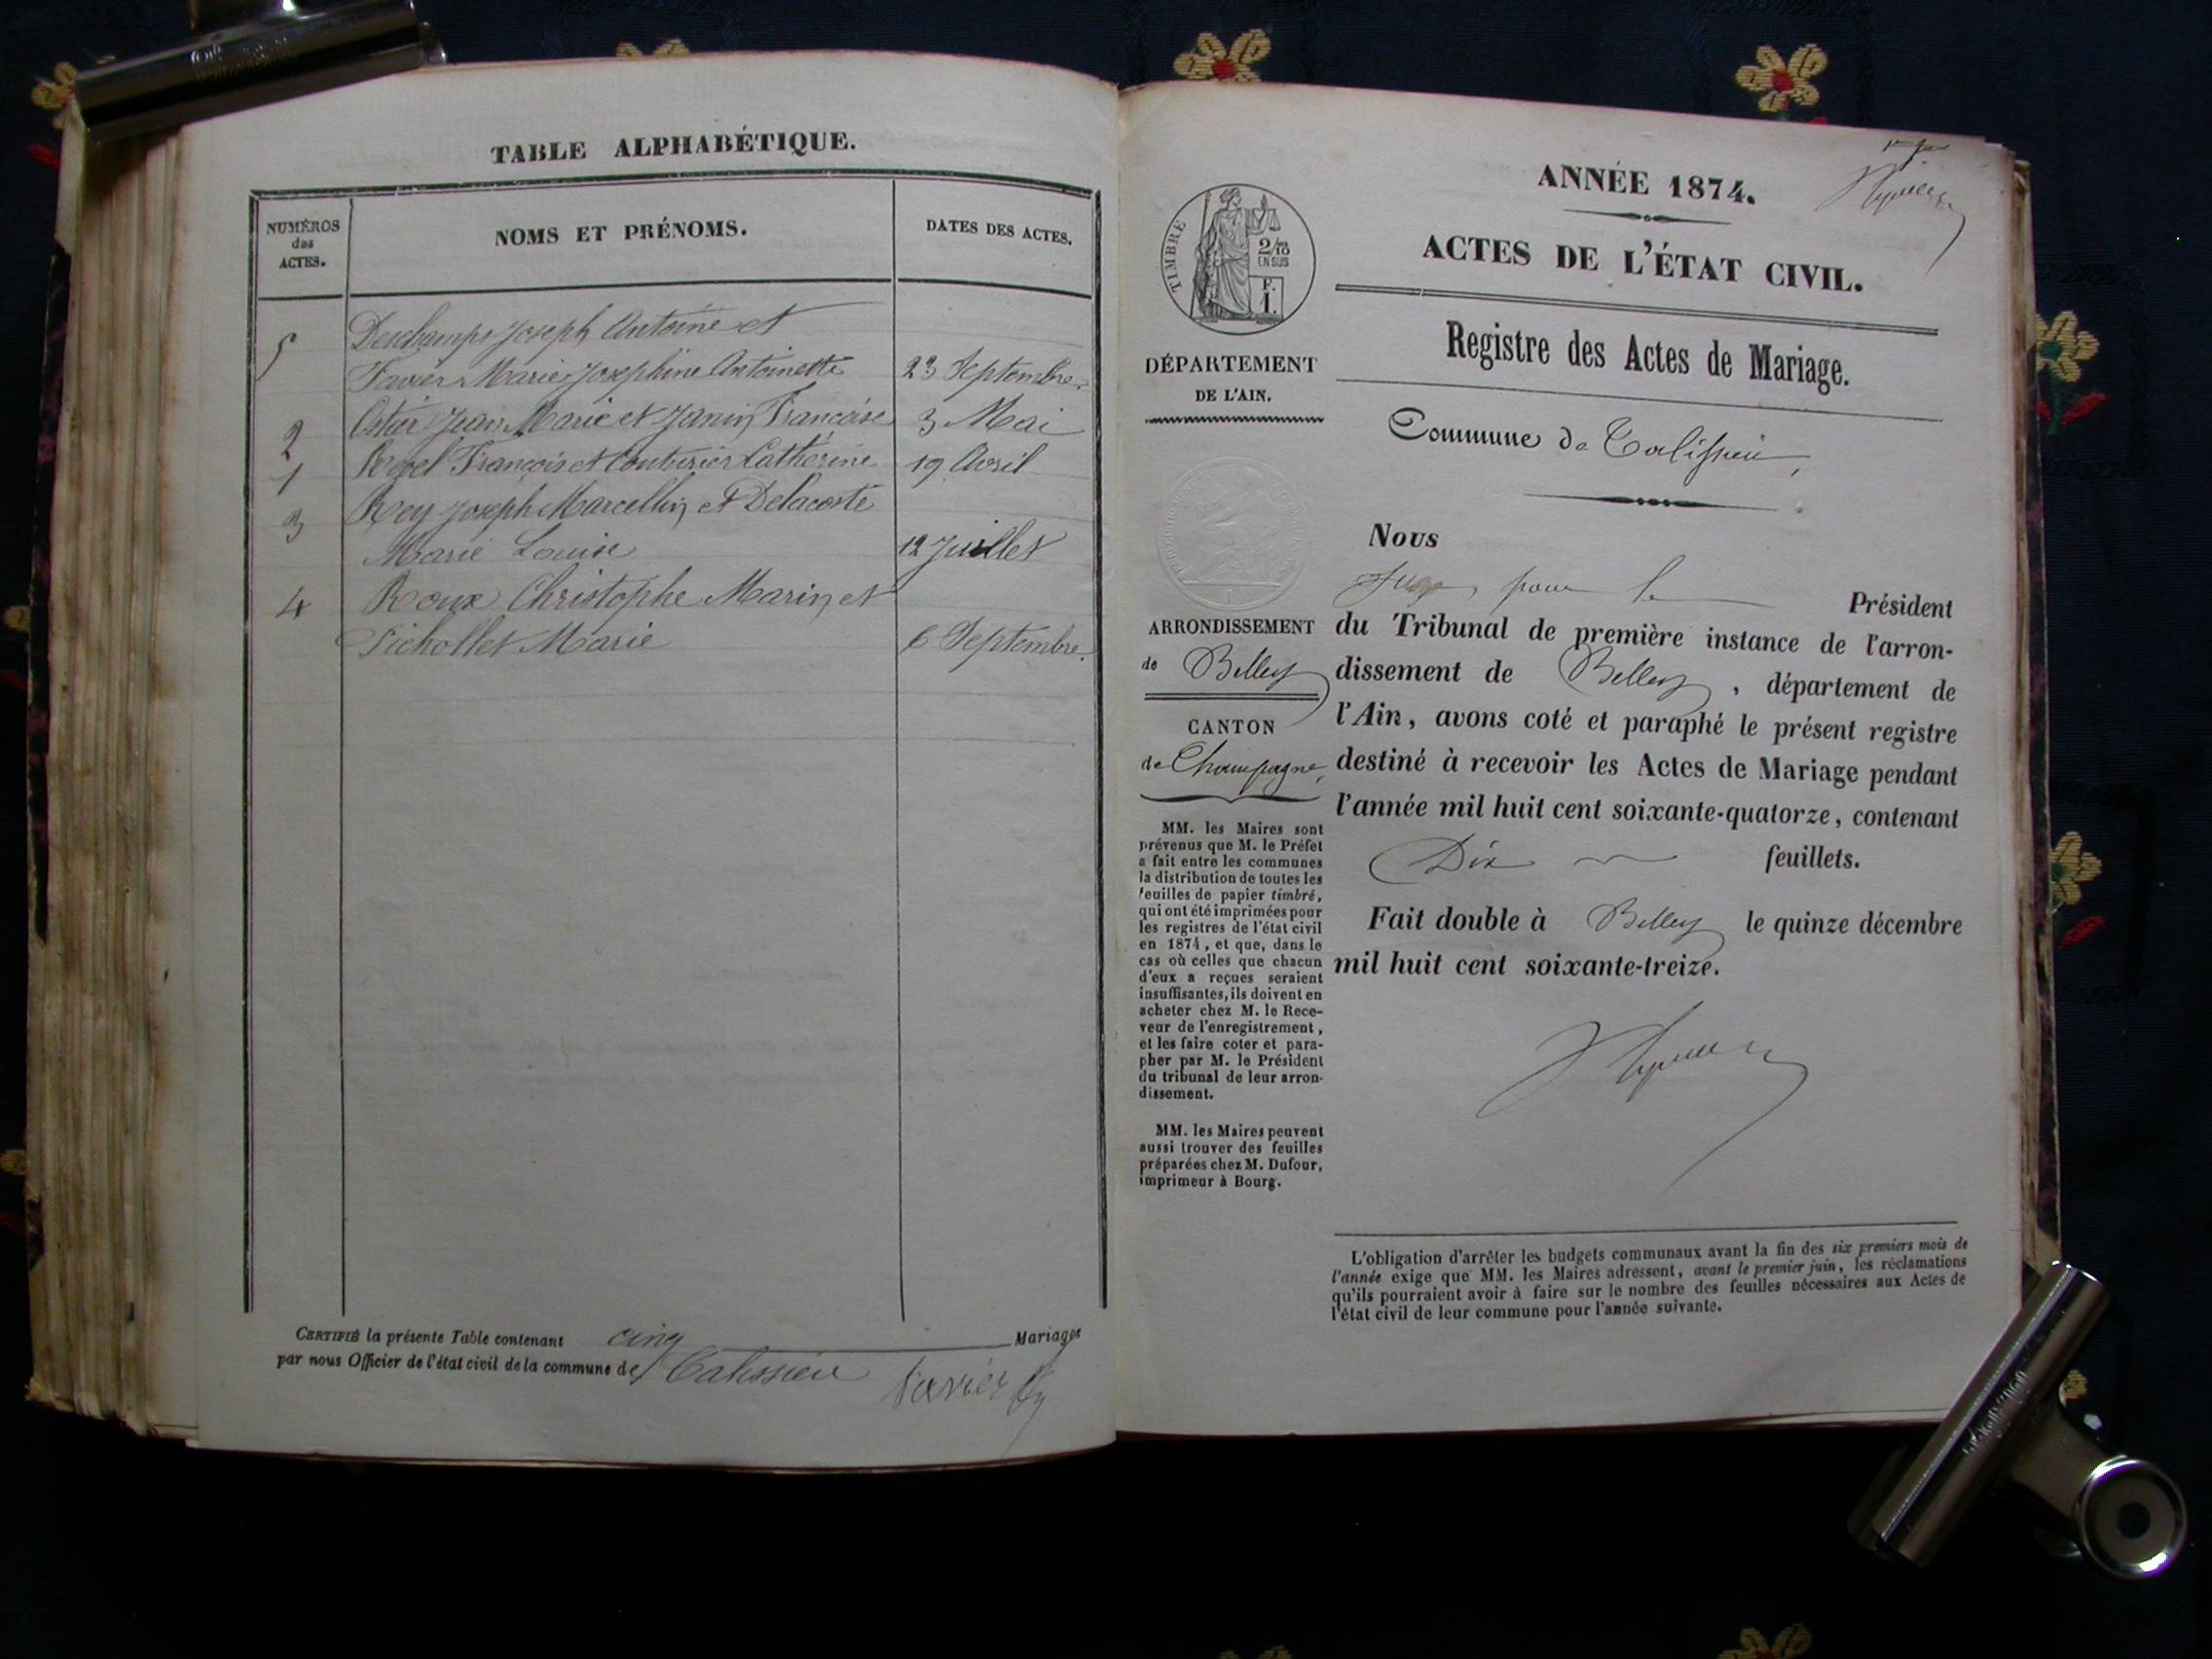 TABLE ALPHABÉTIQUE.
NUMÉROS
des
ACTES.
NOMS ET PRÉNOMS.
DATES DES ACTES.
5 Deschamps Joseph Antoine et
Favier Marie Josephine Antoinette 23 Septembre
2 Jean Marie et Janin Françoise 3 Mai
1 Revel François et Couturier Catherine 19 Avril
3 Rey Joseph Marcellin et Delacoste
Marie Louise 12 Juillet
4 Roux Christophe Marin et
Pichollet Marie 6 Septembre.
CERTIFIÉ la présente Table contenant cinq Mariages
par nous Officier de l'état civil de la commune de Talissieu
Favier
ANNÉE 1874.
ACTES DE L'ÉTAT CIVIL.
Registre des Actes de Mariage.
Commune de Talissieu,
TIMBRE
2/10
EN SUS
F.
1.
DÉPARTEMENT
DE L'AIN.
ARRONDISSEMENT
de Belley
CANTON
de Champagne,
MM. les Maires sont
prévenus que M. le Préfet
a fait entre les communes
la distribution de toutes les
feuilles de papier timbré,
qui ont été imprimées pour
les registres de l'état civil
en 1874, et que, dans le
cas où celles que chacun
d'eux a reçues seraient
insuffisantes, ils doivent en
acheter chez M. le Rece-
veur de l'enregistrement,
et les faire coter et para-
pher par M. le Président
du tribunal de leur arron-
dissement.
MM. les Maires peuvent
aussi trouver des feuilles
préparées chez M. Dufour,
imprimeur à Bourg.
Nous
Juge, pour le Président
du Tribunal de première instance de l'arron-
dissement de Belley, département de
l'Ain, avons coté et paraphé le présent registre
destiné à recevoir les Actes de Mariage pendant
l'année mil huit cent soixante-quatorze, contenant
Dix feuillets.
Fait double à Belley le quinze décembre
mil huit cent soixante-treize.
L'obligation d'arrêter les budgets communaux avant la fin des six premiers mois de
l'année exige que MM. les Maires adressent, avant le premier juin, les réclamations
qu'ils pourraient avoir à faire sur le nombre des feuilles nécessaires aux Actes de
l'état civil de leur commune pour l'année suivante.